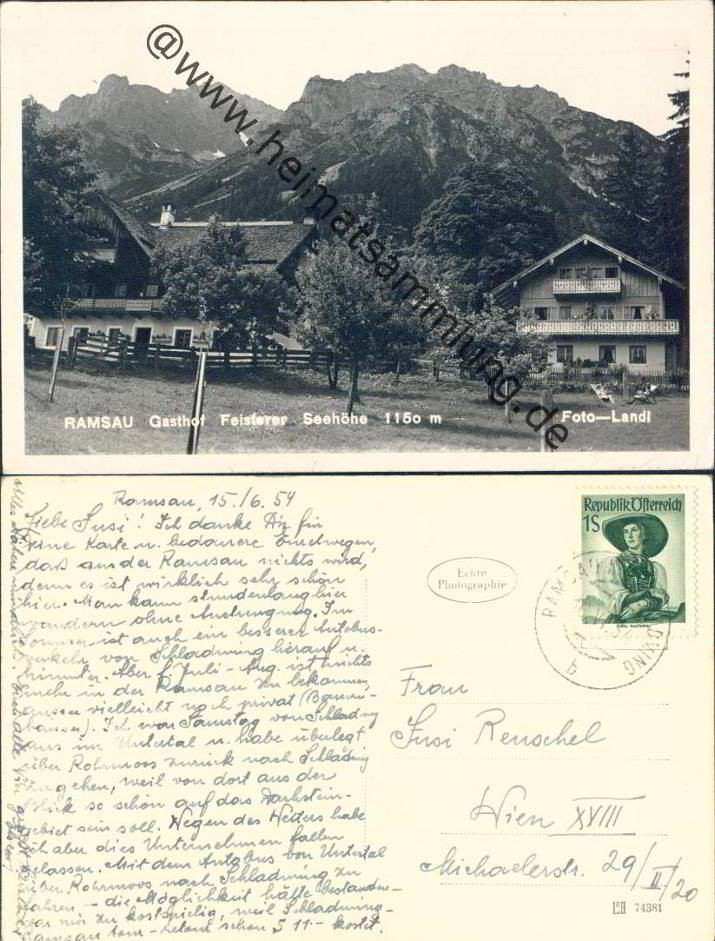 @www.heimatsammlung.de
RAMSAU Gasthof Feisterer Seehöhe 1150 m
Foto-Landl
Ramsau, 15./6. 54
Liebe Susi! Ich danke Dir für
Deine Karte u. bedauere Euretwegen,
daß aus der Ramsau nichts wird,
denn es ist wirklich sehr schön
hier. Man kann stundenlang hier
wandern ohne Anstrengung. Im
Sommer ist auch ein besserer Autobus-
verkehr von Schladming herauf u.
hinunter. Aber f. Juli-Aug. ist nichts
mehr in der Ramsau zu bekommen,
ausser vielleicht noch privat (Bauern-
häuser). Ich war Samstag von Schladmg
aus im Untertal u. habe überlegt
über Rohrmoos zurück nach Schladmg
zu gehen, weil von dort aus der
Blick so schön auf das Dachstein-
gebiet sein soll. Wegen des Wetters habe
ich aber dies Unternehmen fallen
gelassen. Mit dem Autobus von Untertal
über Rohrmoos nach Schladming zu
fahren - die Möglichkeit hätte bestanden -
war mir zu kostspielig, weil Schladming-
Ramsau schon S 11.- kostet.
Echte
Photographie
Republik Österreich
1S
RAMSAU
Frau
Susi Renschel
Wien XVIII
Michaelerstr. 29/II/20
L&H 74381